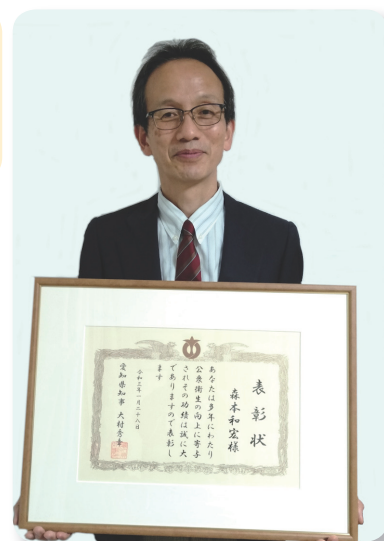 表彰状
森本和宏様
あなたは多年にわたり
公衆衛生の向上に寄与
されその功績は誠に大
でありますので表彰し
ます
令和三年一月二十八日
愛知県知事 大村秀章